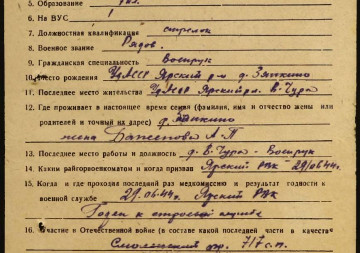 5. Образование
6. На ВУС 1
7. Должностная квалификация стрелок
8. Военное звание Рядов.
9. Гражданская специальность
10. Место рождения УАССР Ярский р-н д. Зянкино
11. Последнее место жительства УАССР Ярский р. В-Чура
12. Где проживает в настоящее время семья (фамилия, имя и отчество жены или
родителей и точный адрес) д.
жена Баженова А-П
13. Последнее место работы и должность д. В-Чура
14. Каким райгорвоенкоматом и когда призван Ярский РВК 29/06.44г.
15. Когда и где проходил последний раз медкомиссию и результат годности к
военной службе 29.06.44г. Ярский РВК
Годен к строевой службе
16. Участие в Отечественной войне (в составе какой последней части в качестве
Смоленский фр. 717 с.п.